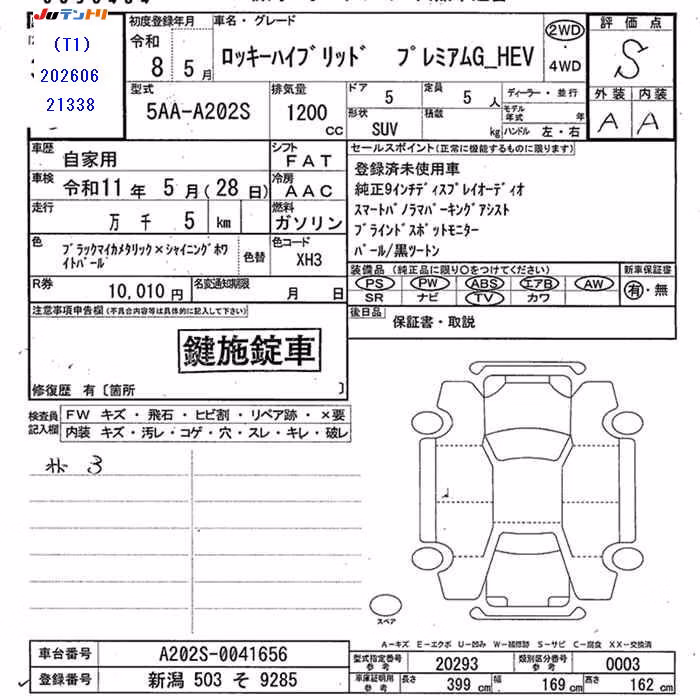 Juテントリ
(T1)
202606
21338
初度登録年月
令和
8 年 5 月
車名・グレード
ロッキーハイブリッド プレミアムG_HEV
2WD
4WD
評価点
S
外装 内装
A A
型式
5AA-A202S
排気量
1200 cc
ドア
5
定員
5 人
形状
SUV
積載
kg
ディーラー・並行
モデル年式 年
ハンドル 左・右
車歴
自家用
シフト
FAT
車検
令和11 年 5 月(28 日)
冷房
AAC
走行
万 千 5 km
燃料
ガソリン
色
ブラックマイカメタリック×シャイニングホワイトパール
色替
色コード
XH3
R券
10,010 円
名変通知期限
月 日
セールスポイント(正常に機能するものに限ります)
登録済未使用車
純正9インチディスプレイオーディオ
スマートパノラマパーキングアシスト
ブラインドスポットモニター
パール/黒ツートン
装備品 (純正品に限り○をつけてください)
PS PW ABS エアB AW
SR ナビ TV カワ
新車保証書
有・無
後日品
保証書・取説
注意事項申告欄(不具合内容等は具体的に記入して下さい)
鍵施錠車
修復歴 有〔箇所 〕
検査員記入欄
FW キズ・飛石・ヒビ割・リペア跡・×要
内装 キズ・汚レ・コゲ・穴・スレ・キレ・破レ
3
スペア
A-キズ E-エクボ U-凹み W-補修跡 S-サビ C-腐食 XX-交換済
車台番号
A202S-0041656
登録番号
新潟 503 そ 9285
型式指定番号
参考
20293
類別区分番号
参考
0003
車庫証明用
参考
長さ
399 cm
幅
169 cm
高さ
162 cm